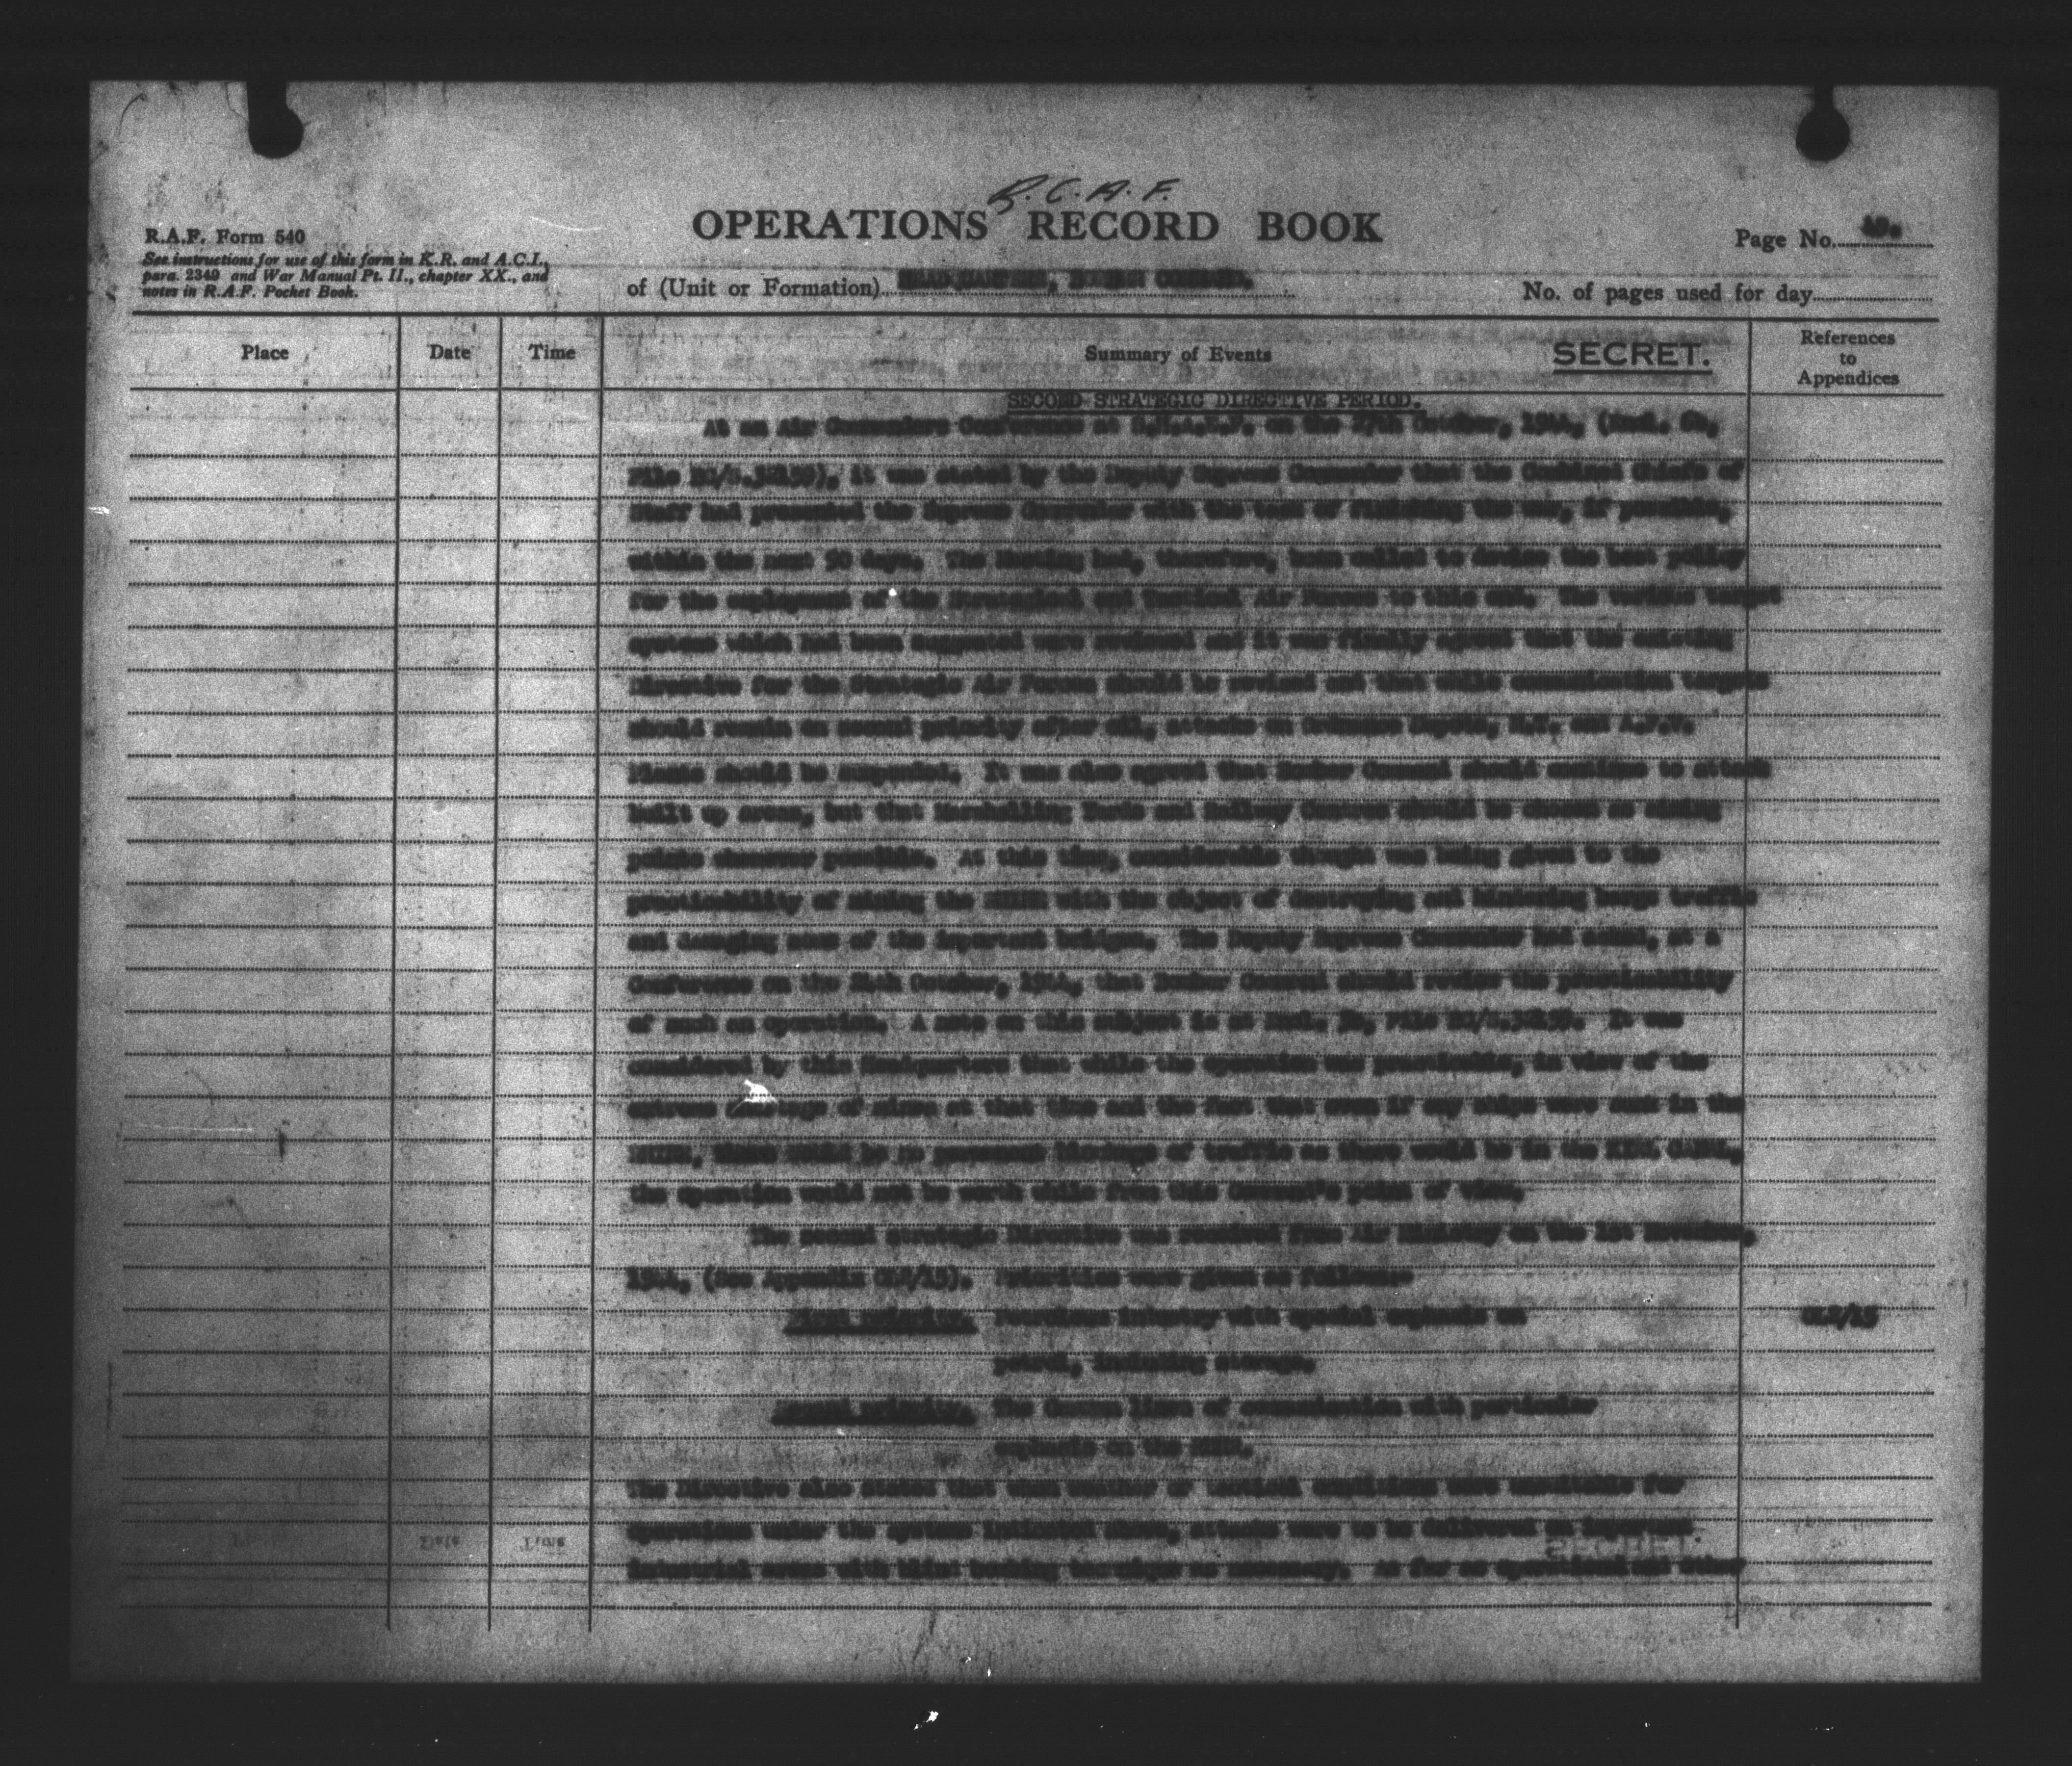 R.C.A.F.
OPERATIONS RECORD BOOK
R.A.F. Form 540
See instructions for use of this form in K.R. and A.C.I.,
para. 2349 and War Manual Pt. II., chapter XX., and
notes in R.A.F. Pocket Book.
Page No.
of (Unit or Formation) HEADQUARTERS, BOMBER COMMAND.
No. of pages used for day
Place Date Time Summary of Events SECRET. References to Appendices
SECOND STRATEGIC DIRECTIVE PERIOD.
At an Air Commanders Conference at S.H.A.E.F. on the 27th October, 1944, (Encl.
it was stated by the Deputy Supreme Commander that the Combined Chiefs of
Staff had presented the Supreme Commander with the task of finishing the war, if possible,
within the next 90 days. The Meeting had, therefore, been called to decide the best policy
for the employment of the Strategical and Tactical Air Forces to this end. The various target
systems which had been suggested were reviewed and it was finally agreed that the existing
Directive for the Strategic Air Forces should be revised and that while communication targets
should remain as second priority after oil, attacks on Ordnance Depots, M.T. and A.F.V.
Plants should be suspended. It was also agreed that Bomber Command should continue to attack
built up areas, but that Marshalling Yards and Railway Centres should be chosen as aiming
points whenever possible. At this time, considerable thought was being given to the
practicability of mining the RHINE with the object of destroying and hindering barge traffic
and damaging some of the important bridges. The Deputy Supreme Commander had asked, at a
Conference on the 24th October, 1944, that Bomber Command should review the practicability
of such an operation. A note on this subject is at Encl. File It was
considered by this Headquarters that while the operation was practicable, in view of the
extreme shortage of mines at that time and the fact that even if any ships were sunk in the
RHINE, there would be no permanent blockage of traffic as there would be in the KIEL CANAL,
the operation would not be worth while from this Command's point of view.
The second strategic Directive was received from Air Ministry on the 1st November,
1944, (See Appendix Priorities were given as follows:
First priority. Petroleum industry with special emphasis on
petrol, including storage.
Second priority. The German lines of communication with particular
emphasis on the RUHR.
The Directive also stated that when weather or tactical conditions were unsuitable for
operations under the systems indicated above, attacks were to be delivered on important
industrial areas with blind bombing technique as necessary. As far as operational and other